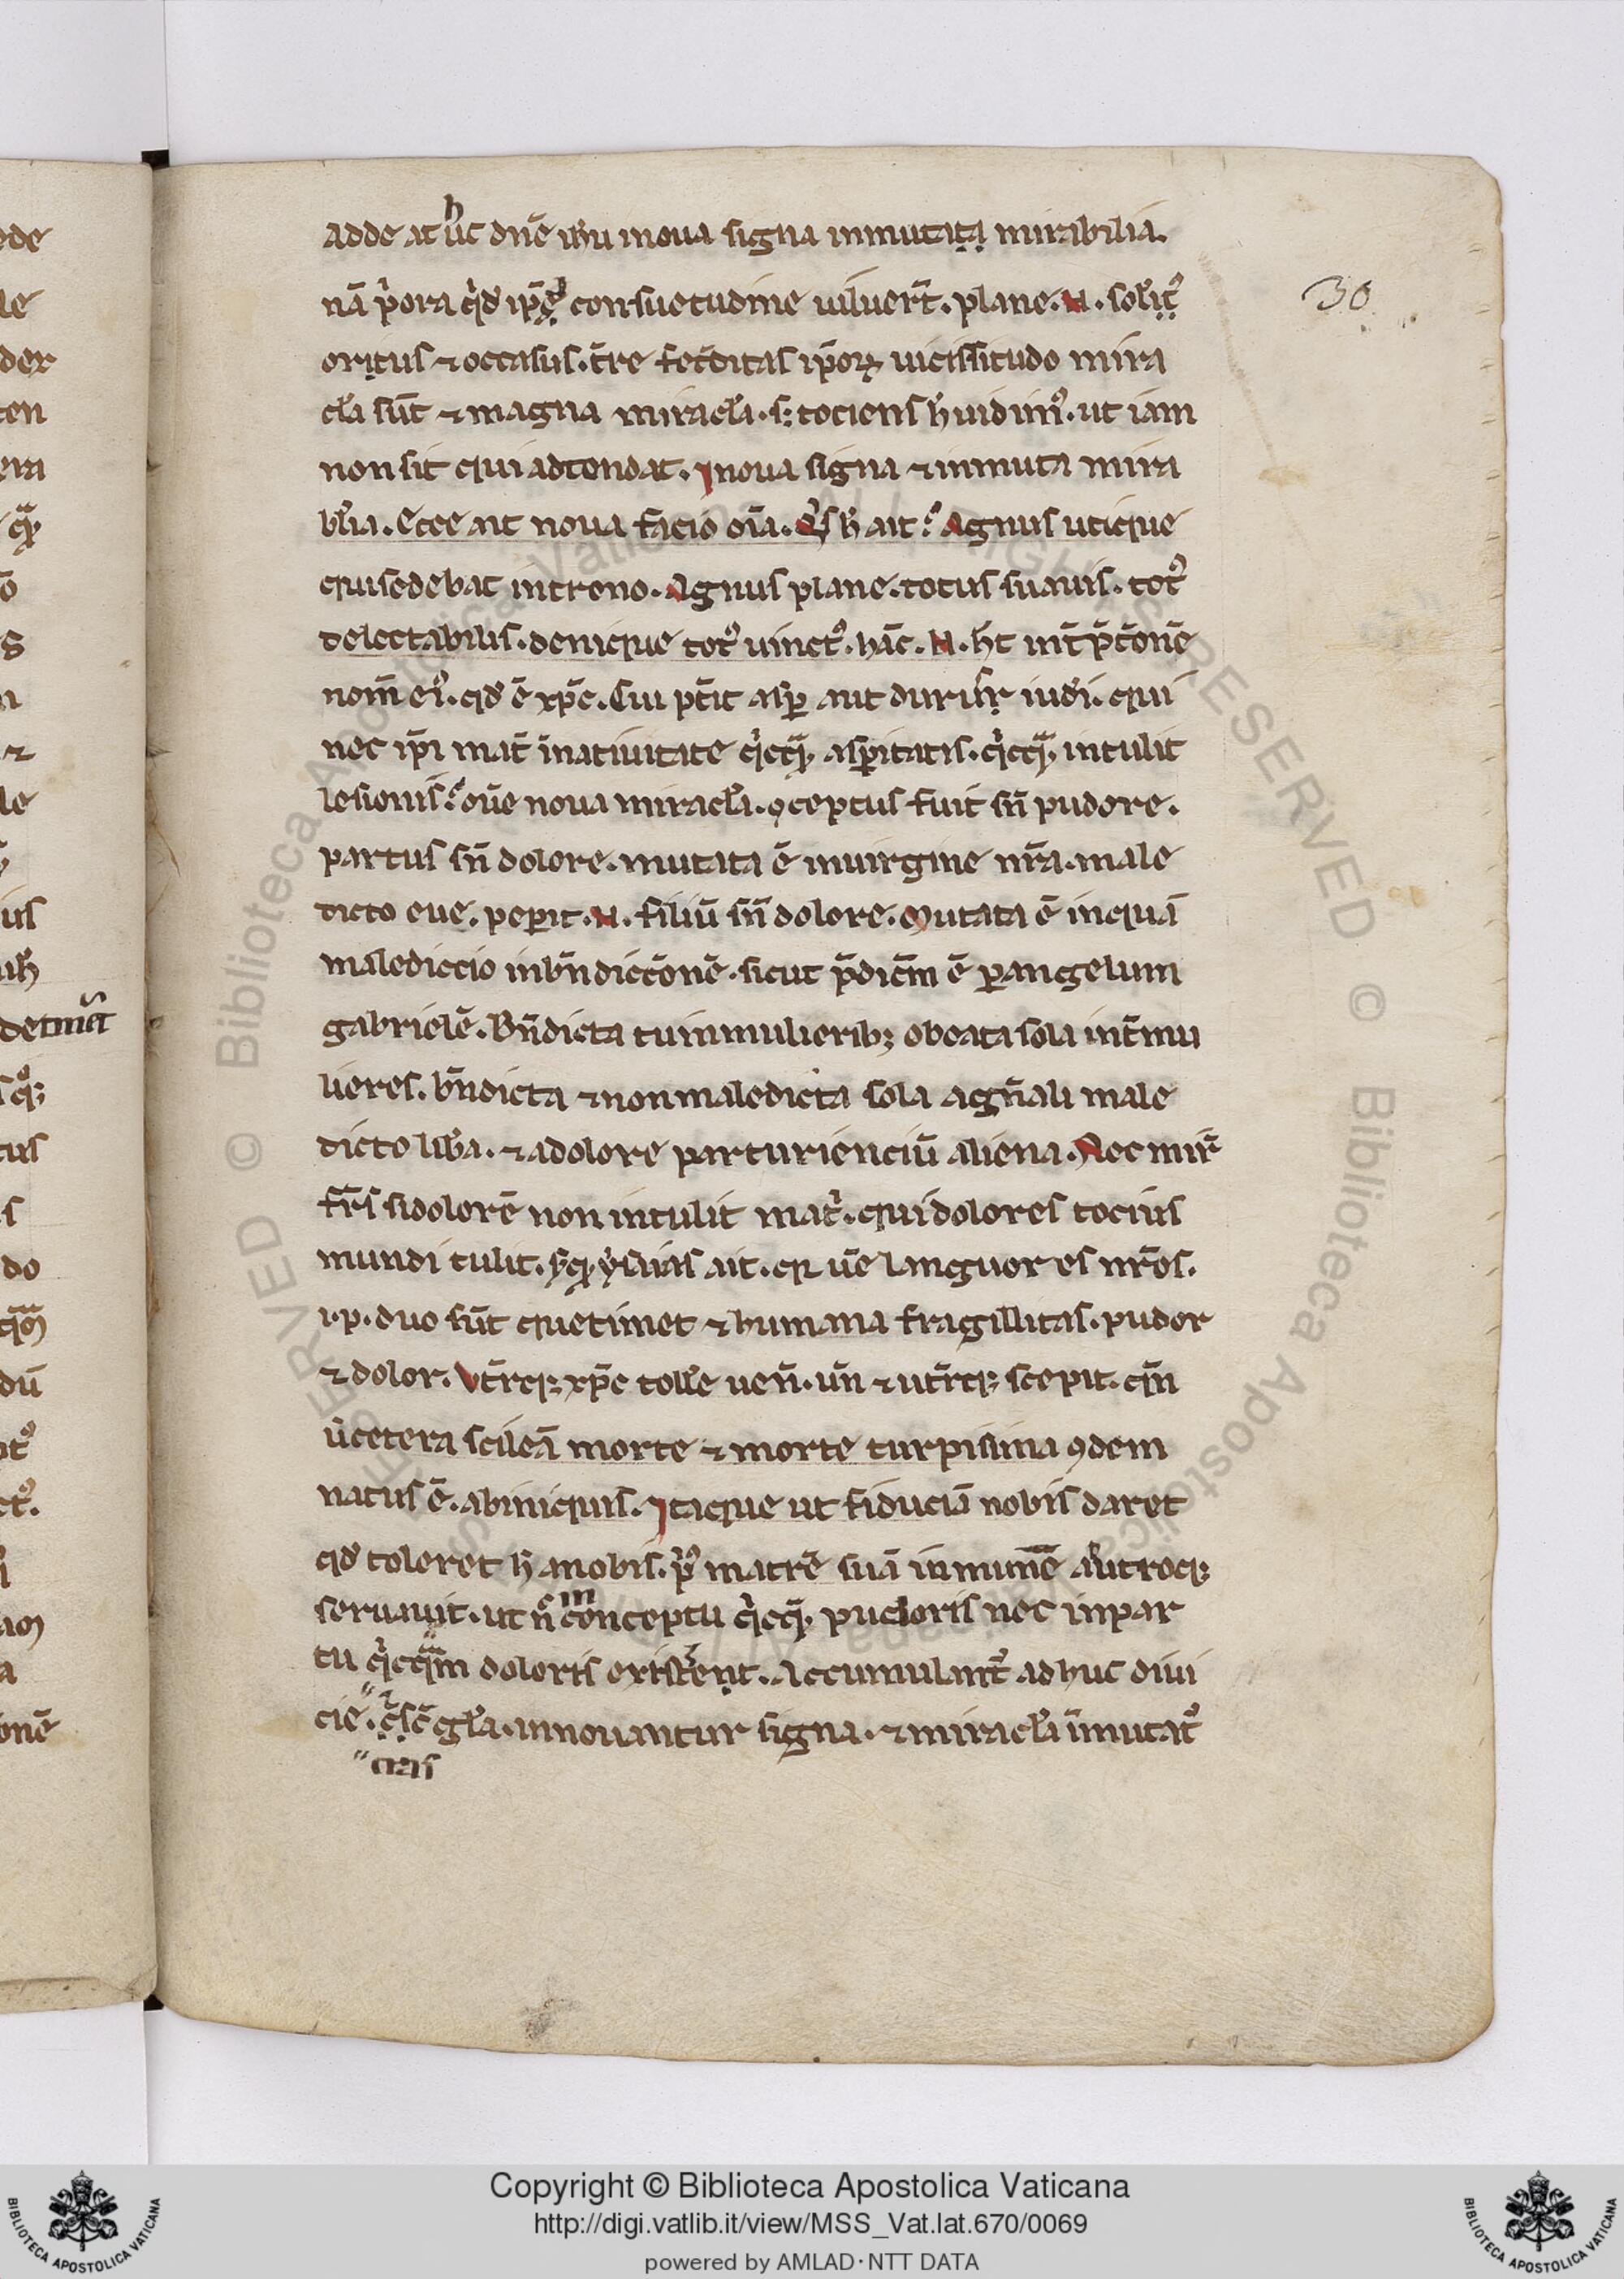 adde at huc dn̄e ihu innoua signa inmutata mirabilia.
nā p̉ora q̉d ip̄e consuetudine uiluer̄t. plane. N. sol̉it᷒
30
oritus ⁊ occasus. t̄re fec̄ditas ip̄oꝝ uicissitudo mira
cl̄a sūt ⁊ magna miracl̄a. s; tociens h̄ uidim᷒. ut iam
non sit qui adtendat. Innoua signa ⁊ inmuta mira
bl̄ia. Ecce ait noua facio oīa. Q̉s h̄ ait? Agnus utique
qui sedebat in trono. Agnus plane. totus suauis. tot᷒
delectabilis. denique tot᷒ unct᷒. hāc. N. ht̄ int̄p̄t̄onē
nom̄ ei᷒. qd̄ ē xp̄c. Cui pt̄it asp̄ aut durus iudi. qui
nec ip̄i mat̄ in natiuitate q̉cqꝫ asp̄itatis. q̉cqꝫ intulit
lesionis? oūe noua miracl̄a. ꝯceptus fuit sn̄ pudore.
partus sn̄ dolore. mutata ē in uirgine nr̄a. male
dicto eue. pep̄it. N. filiū sn̄ dolore. Mutata ē inquā
malediccio in bn̄dicc̄onē. sicut p̄dictm̄ ē ꝑ angelum
gabrielē. Bn̄dicta tu in mulieribꝫ o beata sola int̄ mu
lieres. bn̄dicta ⁊ non maledicta sola a gn̄ali male
dicto lib̄a. ⁊ a dolore parturienciū aliena. Nec mir̄
fr̄s si dolorē non intulit mat̉. qui dolores tocius
mundi tulit. sꝫ ysaias ait. qꝛ ūe languores nr̄os.
ip. duo sūt que timet ⁊ humana fragillitas. pudor
⁊ dolor. Vt̄rqꝫ xp̄c toll̄e uen̄. un̄ ⁊ ut̄rqꝫ scepit. qn̄
u̇ cetera sileā morte ⁊ morte turpisima ꝯdem
natus ē. ab iniquis. Itaque ut fiduciā nobis daret
qd̄ toleret h̄ a nobis. p̉᷒ matrē suā inmunē ab utroqꝫ
seruauit. ut n̄ in conceptu q̉cqꝫ pudoris nec in par
tu q̉cqꝫm doloris existeret. Accumulant᷒ adhuc diui
cie. c̄sc̄ gl̄a. innouantur signa. ⁊ miracl̄a īmutāt᷒
"cras
Copyright © Biblioteca Apostolica Vaticana
http://digi.vatlib.it/view/MSS_Vat.lat.670/0069
powered by AMLAD·NTT DATA